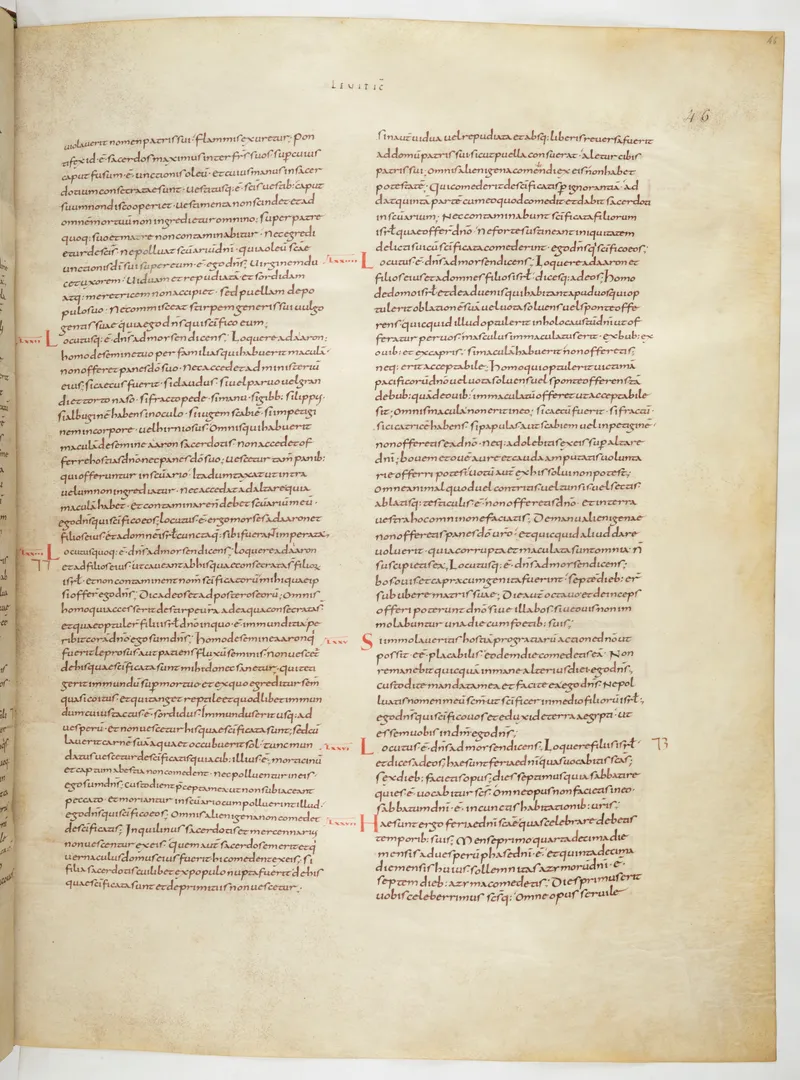 LEVITIC̄
46
uiolauerit nomen patris sui · flammis exuretur; Pon
tifex id · ē · sacerdos maximus inter fr̄s suos sup cuius
caput fusum · ē · unctionis oleū · et cuius manus in sacer
dotium consecratae sunt · uestitusq; · ē · sc̄is uestib; caput
suum non discooperiet · uestimenta non scindet et ad
omnē mortuū non ingredietur omnino; super patre
quoq; suo et matre non contaminabitur · nec egredi
etur de sc̄is · ne polluat sc̄uariū dn̄i · quia oleū sc̄ae
unctionis dī sui super eum · ē · ego dn̄s; Uirginem du
cet uxorem · Uiduam et repudiatā et sordidam
atq; meretricem non accipiet · sed puellam de po
pulo suo · Nec commisceat stirpem generis sui uulgo
gentis suae quia ego dn̄s qui sc̄ifico eum;
Locutusq; · ē · dn̄s ad mosen dicens; Loquere ad aaron;
homo de semine tuo per familias qui habuerit maculā ·
non offeret panes dō suo · Nec accedet ad ministeriū
eius; si caecus fuerit · si claudus · si uel paruo uel gran
di et torto naso · si fracto pede · si manu · si gibb; si lippus ·
si albuginē habens in oculo · si iugem scabiē · si impetigi
nem in corpore · uel hirniosus; Omnis qui habuerit
maculā de semine aaron sacerdotis · non accedet of
ferre hostias dn̄o nec panes dō suo; Uescetur tam̄ panib;
qui offeruntur in sc̄uario · Ita dumtaxat ut intra
uelum non ingrediatur · nec accedat ad altare quia
maculā habet · et contaminare n̄ debet sc̄uariū meū ·
ego dn̄s qui sc̄ifico eos; Locutus · ē · ergo moses ad aaron et
filios eius et ad omnē isrl̄ cuncta q; sibi fuerant imperata;
Locutus quoq; · ē · dn̄s ad mosen dicens; Loquere ad aaron
et ad filios eius ut caueant ab his quae consecrata s̄ filior;
isrl̄ · et non contaminent nom̄ sc̄ificatorū mihi quae ip
si offer ego dn̄s; Dic ad eos et ad posteros eorū; Omnis
homo qui accesserit de stirpe ur̄a ad ea quae consecrata s̄
et quae optuler̄ filii isrl̄ dn̄o in quo · ē · immunditia pe
ribit corā dn̄o ego sum dn̄s; Homo de semine aaron q̄
fuerit leprosus aut patiens fluxū seminis · non uescet̄
de his quae sc̄ificata sunt mihi donec sanetur · qui teti
gerit immundū sup mortuo · et ex quo egreditur sem̄
quasi coitus · et qui tanget reptile et quodlibet immun
dum cuius tactus · ē · sordidus · Immundus erit usq; ad
uesperū · et non uescetur his quae sc̄ificata sunt; sed cū
lauerit carnē suā aqua et occubuerit sol · tunc mun
datus uescetur de sc̄ificatis quia cib; illius · ē · morticinū
et captum a bestia non comedent · nec polluentur in eis
ego sum dn̄s; custodient p̄cepta mea ut non subiaceant
peccato · et moriantur in sc̄uario cum polluerint illud ·
ego dn̄s qui sc̄ifico eos; Omnis alienigena non comedet
de sc̄ificatis; Inquilinus sacerdotis et mercennarius
non uescentur ex eis; Quem aut̄ sacerdos emerit et q̄
uernaculus domus eius fuerit hi comedent ex eis; si
filia sacerdotis cuilibet ex populo nupta fuerit de his
quae sc̄ificata sunt et de primitiis non uescetur;
Sin aut̄ uidua uel repudiata et absq; liberis reuersa fuerit
ad domū patris sui sicut puella consuerat · aletur cibis
patris sui; omnis alienigena comedendi ex eis non habet
potestatē · Qui comederit de sc̄ificatis p ignorantiā · ad
dat quintā partē cum eo quod comedit et dabit sacerdoti
in sc̄uarium; Nec contaminabunt sc̄ificata filiorum
isrl̄ quae offer̄ dn̄o · Ne forte sustineant iniquitatem
delicti sui cū sc̄ificata comederint · ego dn̄s sc̄ifico eos;
Locutus · ē · dn̄s ad mosen dicens; Loquere ad aaron et
filios eius et ad omnes filios isrl̄ · dicesq; ad eos; Homo
de domo isrl̄ et de aduenis qui habitant apud uos qui op
tulerit oblationē suā uel uota soluens uel sponte offe
rens quicquid illud optulerit in holocaustū dn̄i ut of
feratur per uos · masculus immaculatus erit · ex bub; ex
ouib; et ex capris; si maculā habuerit non offeretis;
neq; erit acceptabile; homo qui optulerit uictimā
pacificorū dn̄o uel uota soluens uel sponte offerens tā
de bub; quā de ouib; immaculatū offeret ut acceptabile
sit; Omnis macula non erit in eo; si caecū fuerit · si fractū ·
si cicatricē habens · si papulas aut scabiem uel inpetiginē ·
non offeretis ea dn̄o · neq; adolebitis ex eis sup altare
dn̄i; bouem et ouē aure et cauda amputatis uolunta
rie offerri potest; uotū aut̄ ex his solui non potest;
Omne animal quod uel contritis uel tunsis uel sectis
ablatisq; testiculis · ē · non offeretis dn̄o · et in terra
uestra hoc omnino ne faciatis; De manu alienigenae
non offeretis panes dō ur̄o · et quicquid aliud dare
uoluerit · quia corrupta et maculata sunt omnia; n̄
suscipietis ea; Locutus q; · ē · dn̄s ad mosen dicens;
bos ouis et capra cum genita fuerint · septē dieb; er̄
sub ubere matris suae; Die aut̄ octauo et deinceps
offeri poterunt dn̄o siue illa bos siue ouis non im
molabuntur una die cum foetib; suis;
Si immolaueritis hostiā pro gratiarū actione dn̄o ut
possit · eē · placabilis · eodem die comedetis eā · Non
remanebit quicquā in mane alterius diei · ego dn̄s;
custodite mandata mea et facite ea · ego dn̄s; Ne pol
luatis nomen meū sc̄m ut sc̄ificer in medio filiorū isrl̄ ·
ego dn̄s qui sc̄ifico uos et eduxi de terra aegypti · ut
essem uobis in dm̄ ego dn̄s;
Locutus · ē · dn̄s ad mosen dicens; Loquere filiis isrl̄ ·
et dices ad eos; hae sunt feriae dn̄i quas uocabitis sc̄as;
sex dieb; facietis opus; dies septimus quia sabbati re
quies · ē · uocabitur sc̄s; Omne opus non facietis in eo ·
sabbatum dn̄i · ē · in cunctis habitationib; ur̄is;
Hae sunt ergo feriae dn̄i sc̄ae quas celebrare debetis
temporib; suis; Mense primo quarta decima die
mensis ad uesperū phase dn̄i · ē · et quinta decima
die mensis huius sollemnitas azymorū dn̄i · ē ·
septem dieb; azyma comedetis; Dies primus erit
uobis celeberrimus sc̄sq; Omne opus seruile